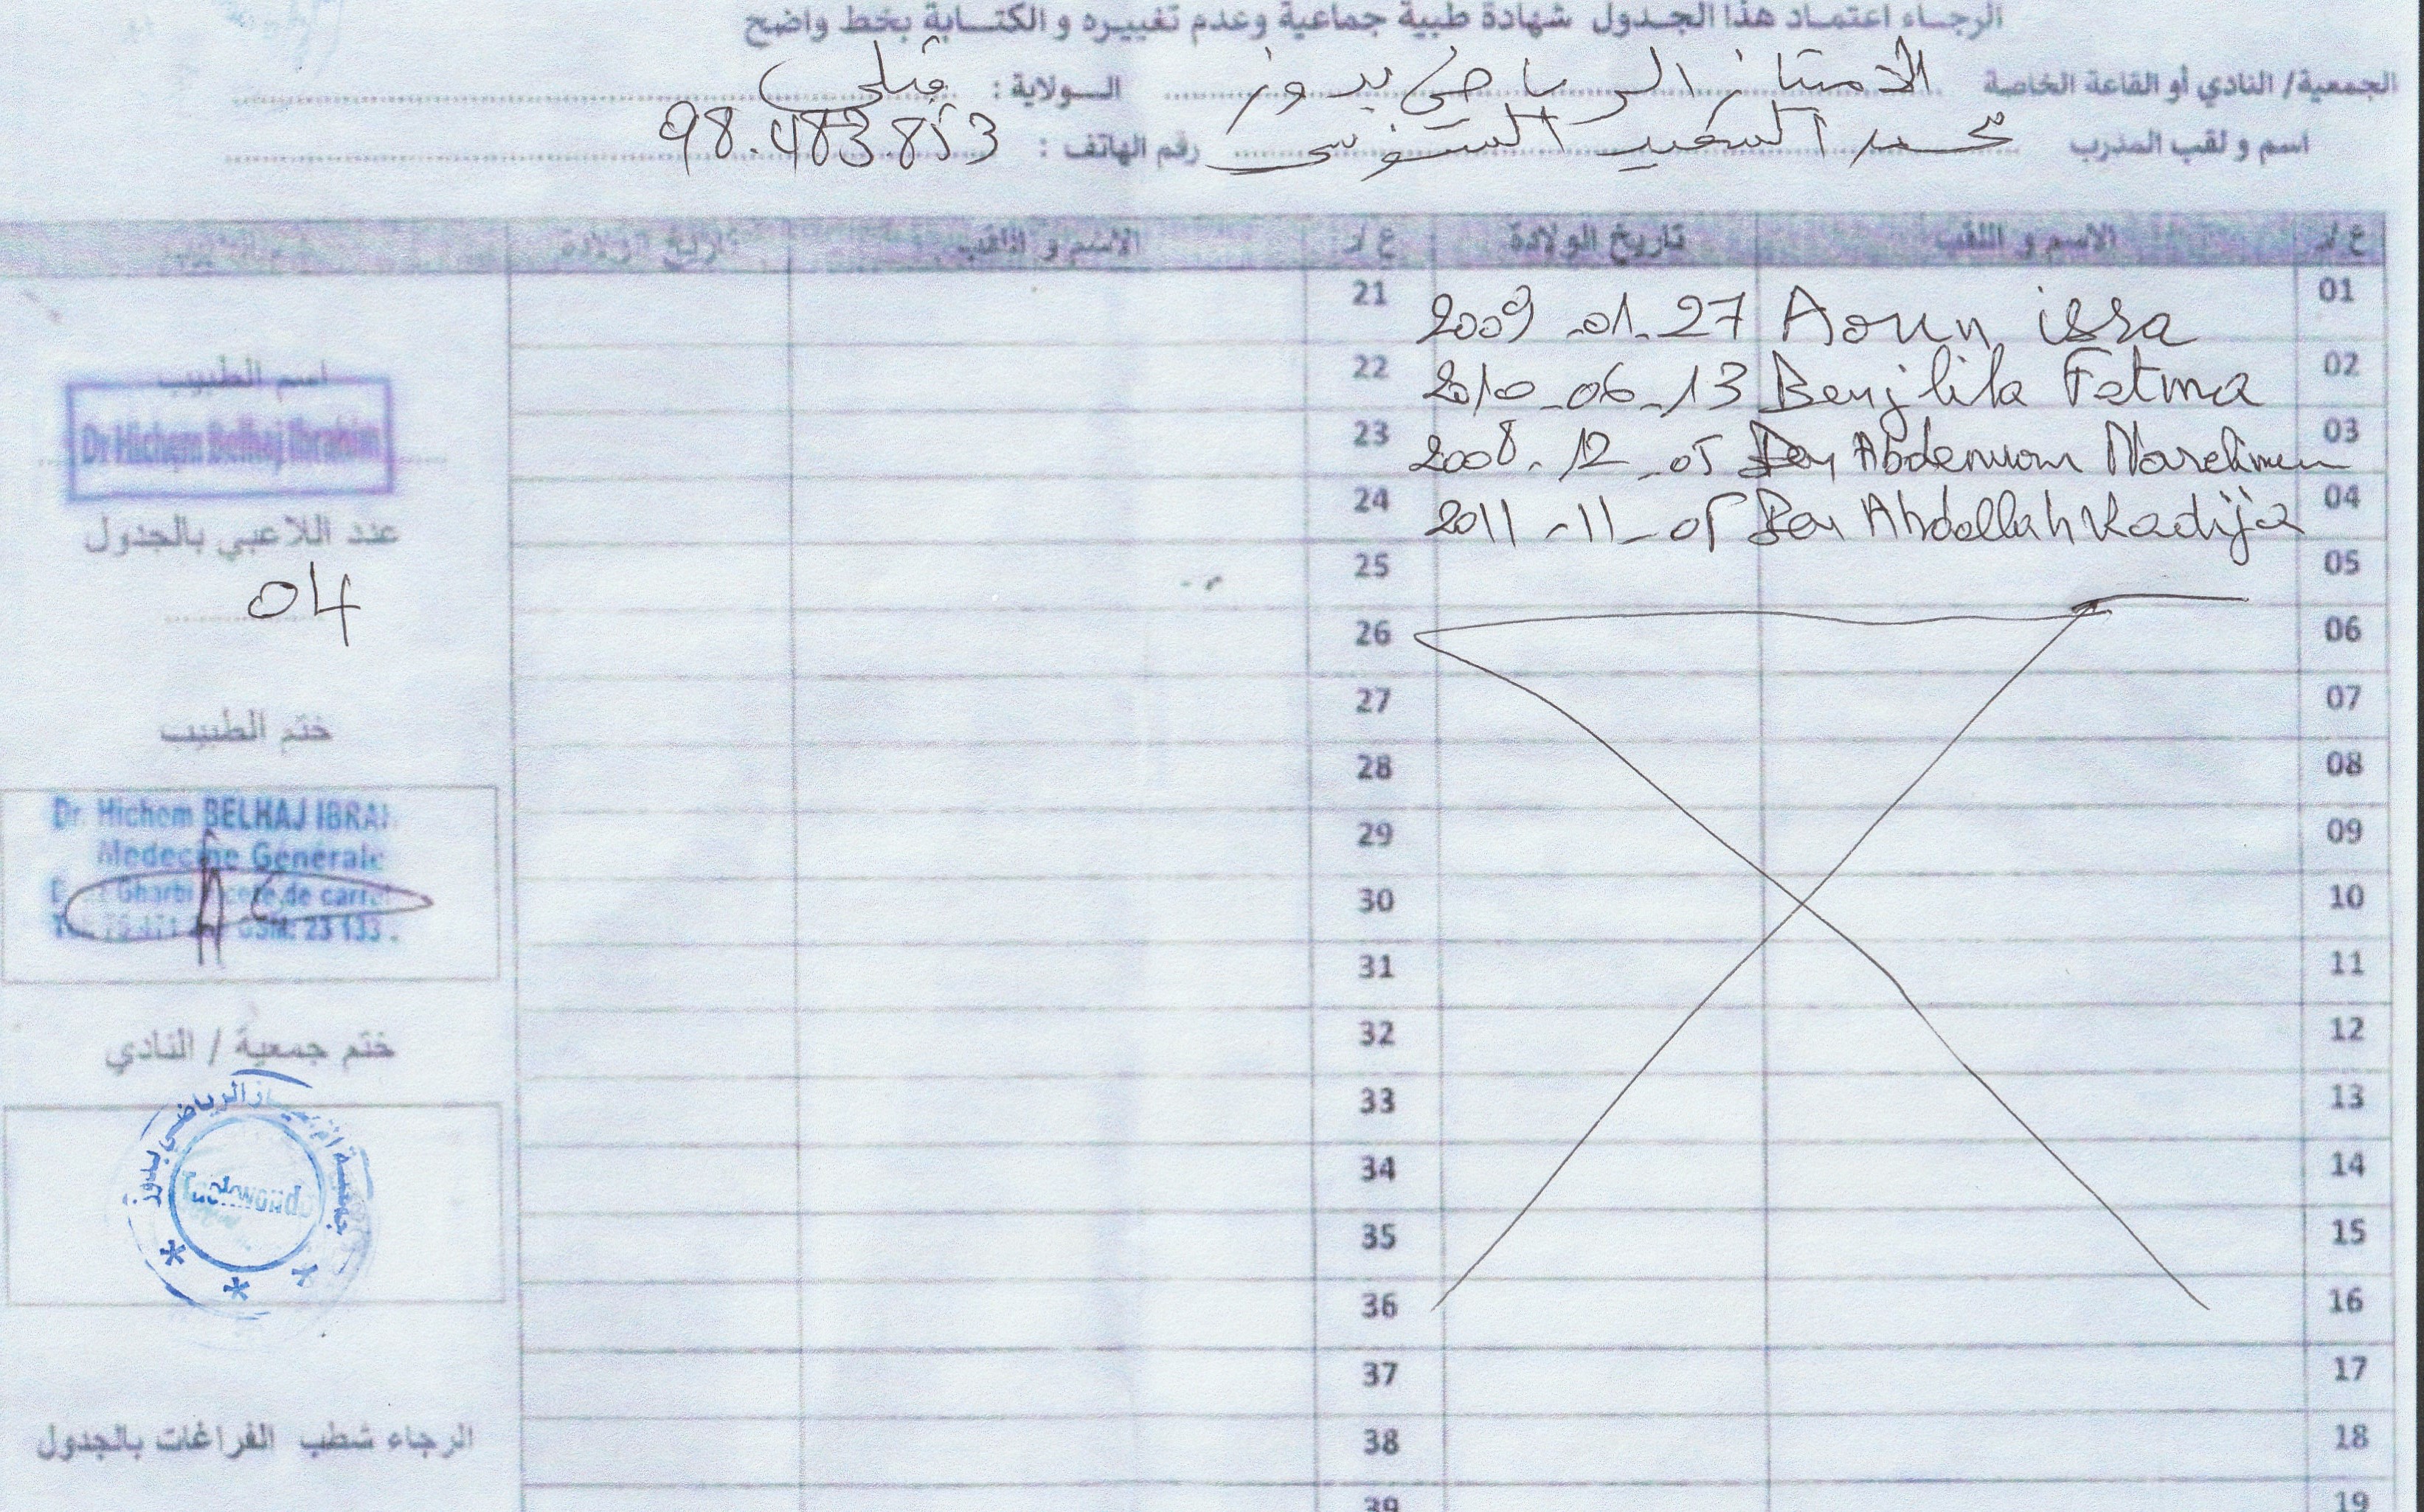 الرجاء اعتماد هذا الجدول شهادة طبية جماعية وعدم تغييره و الكتابة بخط واضح
الجمعية/ النادي أو القاعة الخاصة الامتياز الرياضي بدوز الولاية : قبلي
اسم و لقب المدرب محمد السعيد السنوسي رقم الهاتف : 98.483.853
ع/ر الاسم و اللقب تاريخ الولادة ع/ر الاسم و اللقب تاريخ الولادة
01 Aoun isra 2009-01-27 21
02 Benjlila Fatma 2010-06-13 22
03 Ben Narehmen 2008.12-05 23
04 Ben Abdallah Kadija 2011-11-05 24
05 25
06 26
07 27
08 28
09 29
10 30
11 31
12 32
13 33
14 34
15 35
16 36
17 37
18 38
19 39
اسم الطبيب
Dr Hichem Belhaj Ibrahim
عدد اللاعبي بالجدول
04
ختم الطبيب
Dr. Hichem BELHAJ IBRAH
Medecine Générale
Gharbi de carre
GSM: 23 133
ختم جمعية / النادي
الرياضي بدوز
Taekwondo
الرجاء شطب الفراغات بالجدول